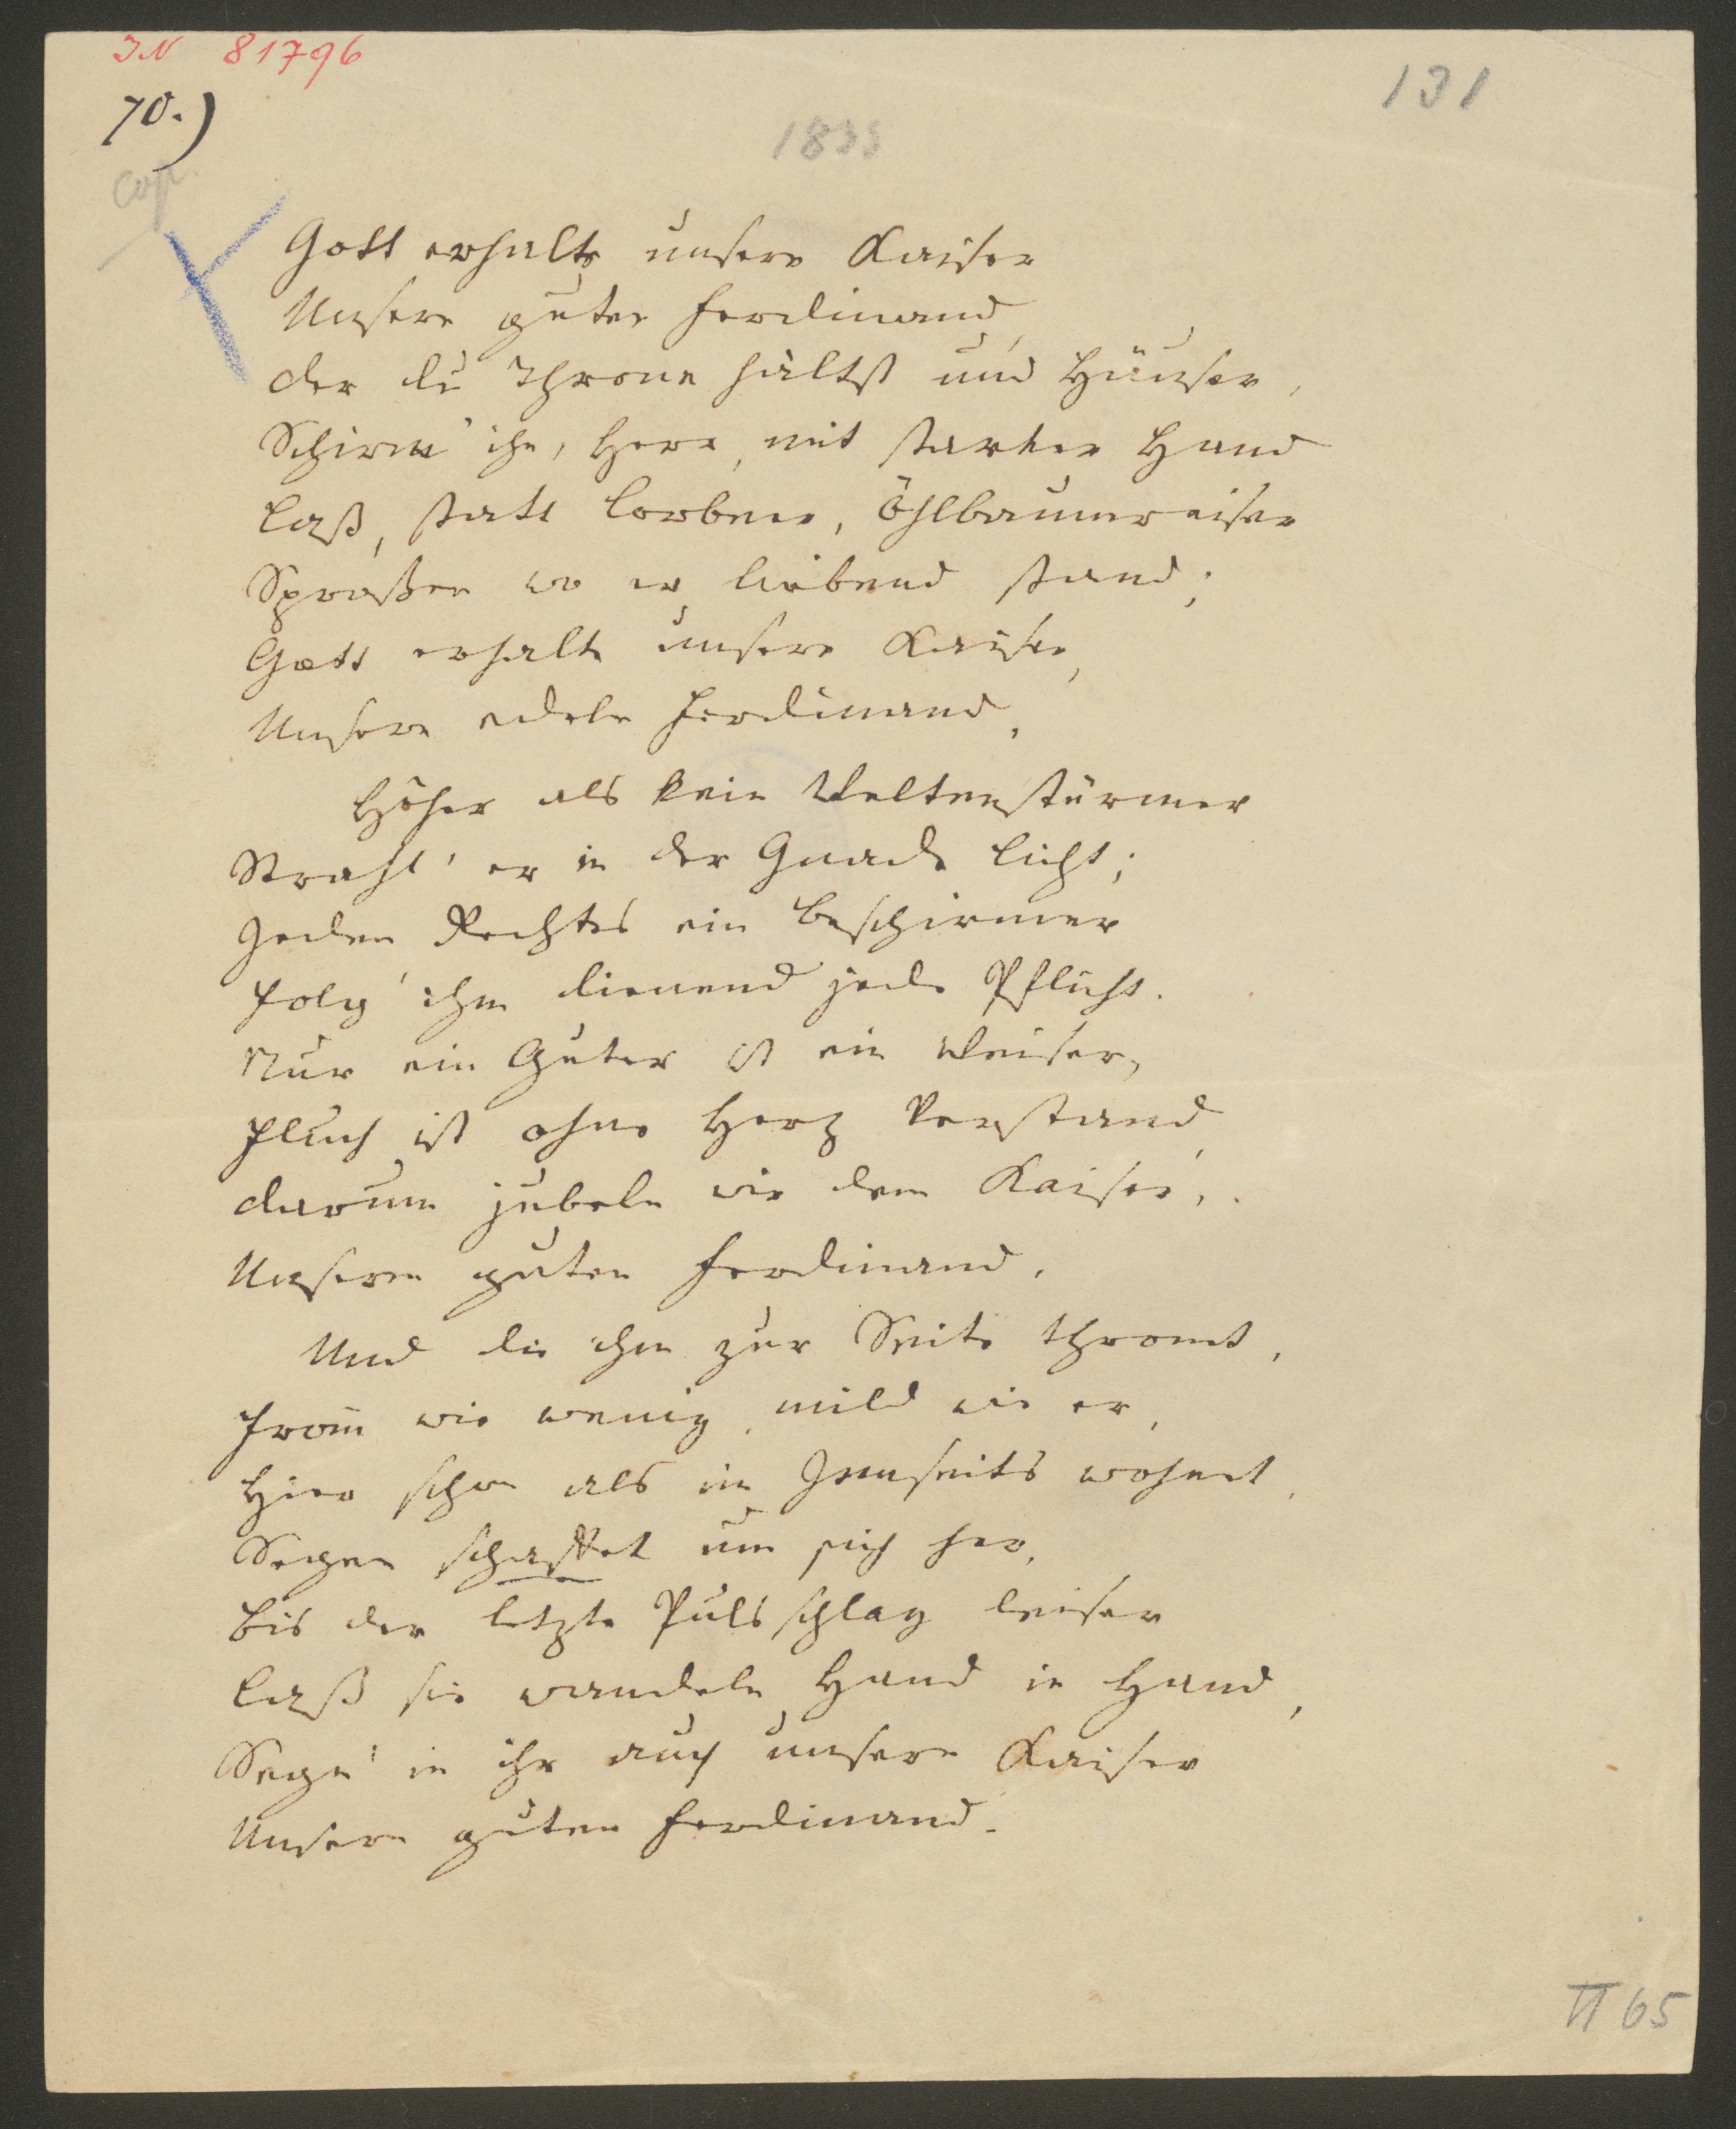 IN 81796
131
70.)
1835
Cop.
Gott erhalte unsern Kaiser
Unsern guten Ferdinand,
der du Throne hältst und Häuser,
Schirm' ihn, Herr, mit starker Hand
Laß, statt Lorbeer, Öhlbaumreiser
Sproßen wo er liebend stand;
Gott erhalte unsern Kaiser,
Unsern edeln Ferdinand.
Höher als kein Weltenstürmer
Strahl' er in der Gnade Licht;
Jeden Rechtes ein Beschirmer
Folg' ihm dienend jede Pflicht.
Nur ein Guter ist ein Weiser,
Fluch ist ohne Herz Verstand,
darum jubeln wir dem Kaiser,
Unserm guten Ferdinand.
Und die ihm zur Seite thront,
From̄ wie wenig, mild wie er,
Hier schon als im Jenseits wohnet,
Segen schaffet um sich her,
bis der letzte Pulsschlag leiser
Laß sie wandeln Hand in Hand,
Segn' in ihr auch unsern Kaiser
Unsern guten Ferdinand.
II 65